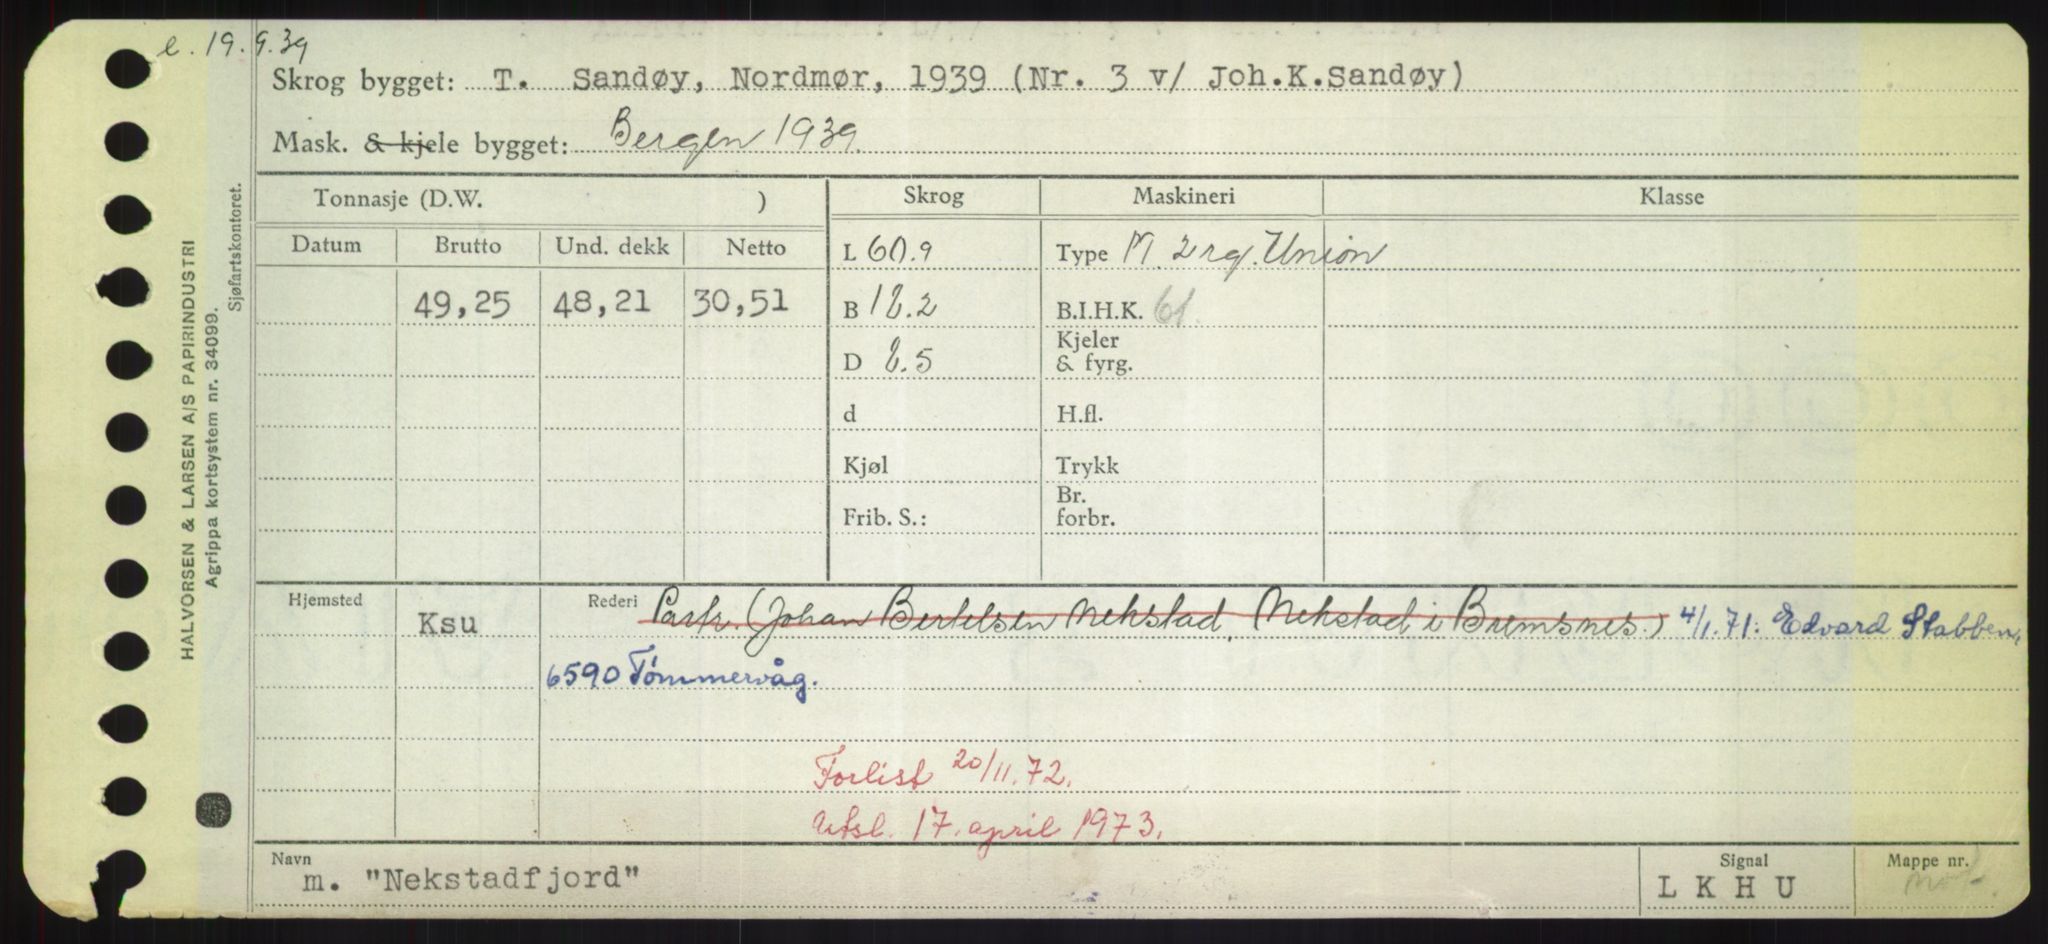 e. 19.9.39
Skrog bygget: T. Sandøy, Nordmør, 1939 (Nr. 3 v/ Joh.K.Sandøy)
Mask. & kjele bygget: Bergen 1939.
Tonnasje (D.W. ) Skrog Maskineri Klasse
Datum Brutto Und. dekk Netto L 60.9 Type M. 2 rg. Union
49,25 48,21 30,51 B 18.2 B.I.H.K. 61.
D 8.5 Kjeler & fyrg.
d H.fl.
Kjøl Trykk
Frib. S.: Br. forbr.
Hjemsted Ksu Rederi Partr. (Johan Bertelsen Nekstad, Nekstad i Bremsnes.) 4/1.71. Edvard Stabben,
6590 Tømmervåg.
Forlist 20/11.72.
Utsl. 17. april 1973.
Navn m. "Nekstadfjord" Signal L K H U Mappe nr.
HALVORSEN & LARSEN A/S PAPIRINDUSTRI
Agrippa kortsystem nr. 34099.
Sjøfartskontoret.